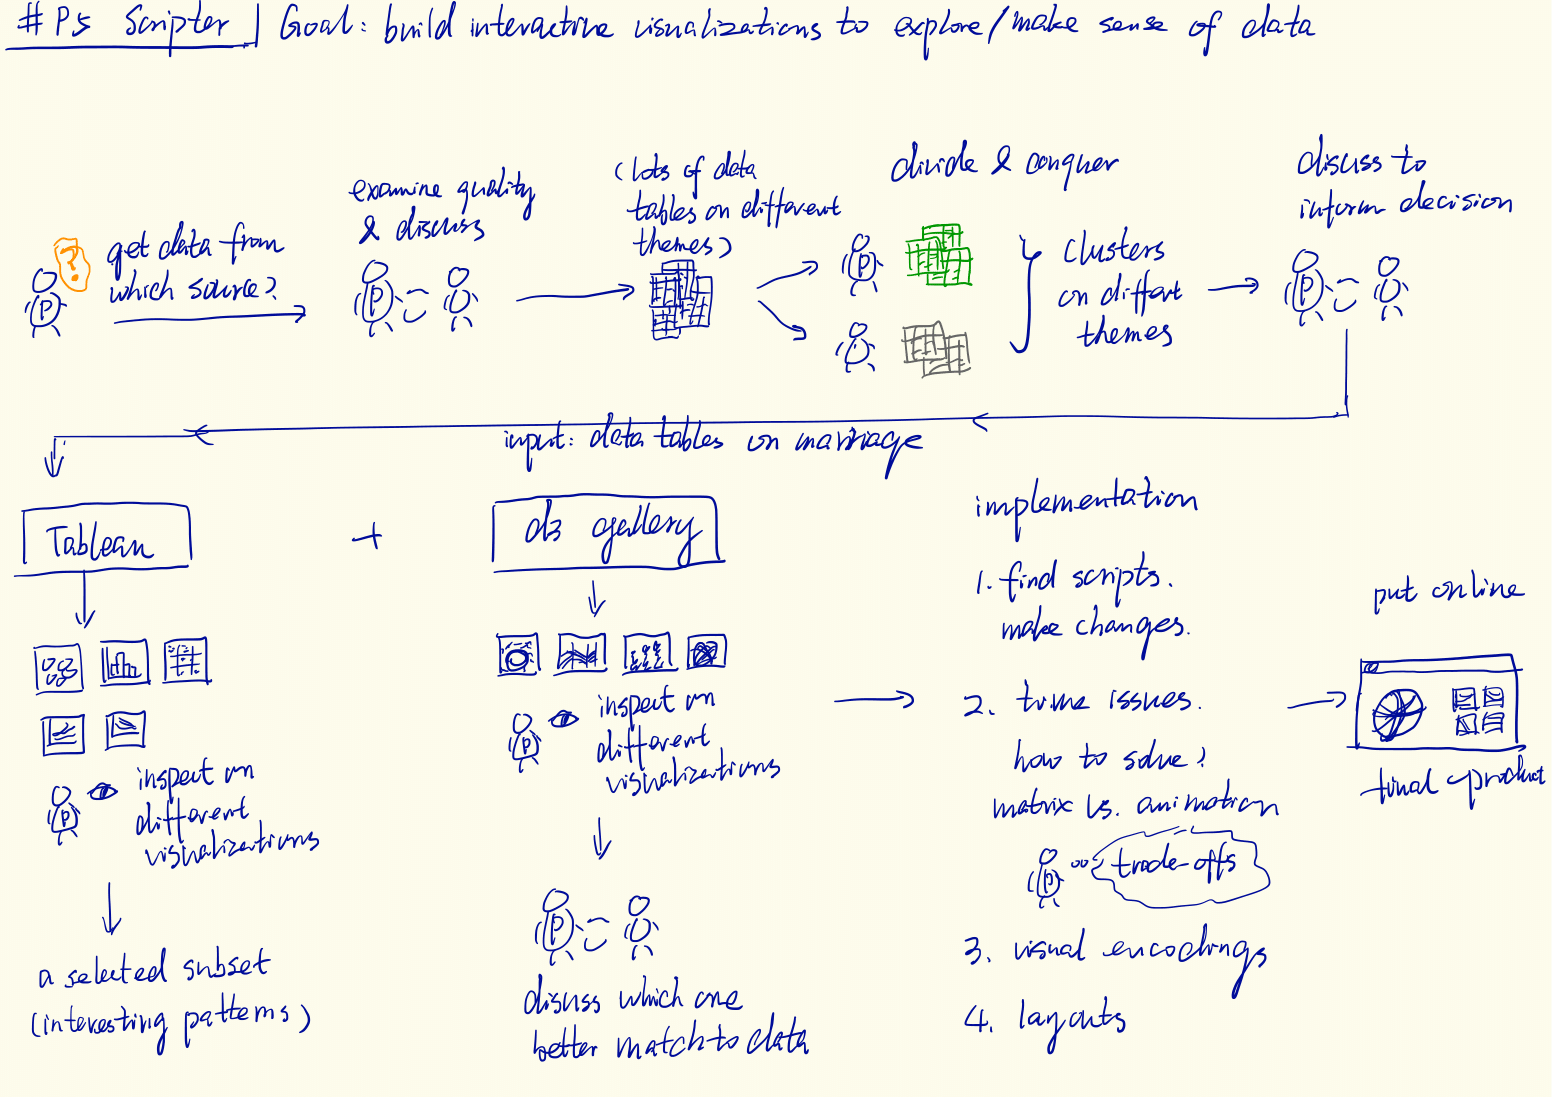 # P5 Scripter | Goal: build interactive visualizations to explore/make sense of data
get data from
which source?
examine quality
& discuss
(lots of data
tables on different
themes)
divide & conquer
clusters
on differt
themes
discuss to
inform decision
?
P
P
P
P
input: data tables on marriage
Tableau
+
d3 gallery
inspect on
different
visualizations
P
a selected subset
(interesting patterns)
inspect on
different
visualizations
P
P
discuss which one
better match to data
implementation
1. find scripts.
make changes.
2. time issues.
how to solve?
matrix vs. animation
P
trade-offs
3. visual encodings
4. layouts
put online
final product